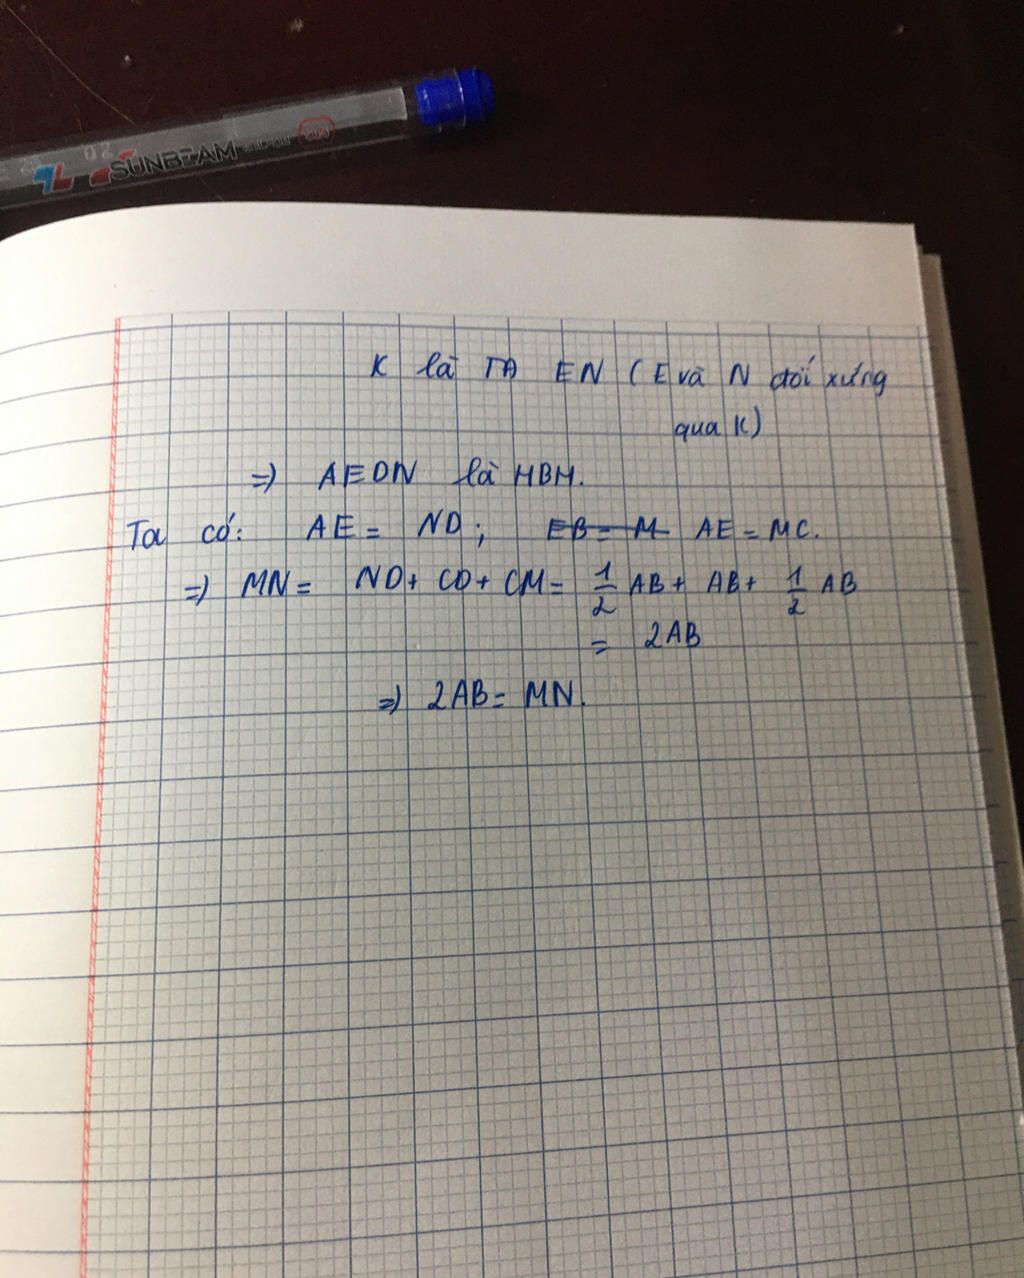 SUNBEAM
K là TĐ EN (E và N đối xứng
qua K)
=> AEDN là HBH.
Ta có: AE = ND; EB = M AE = MC.
=> MN = ND + CD + CM = 1/2 AB + AB + 1/2 AB
= 2AB
=> 2AB = MN.